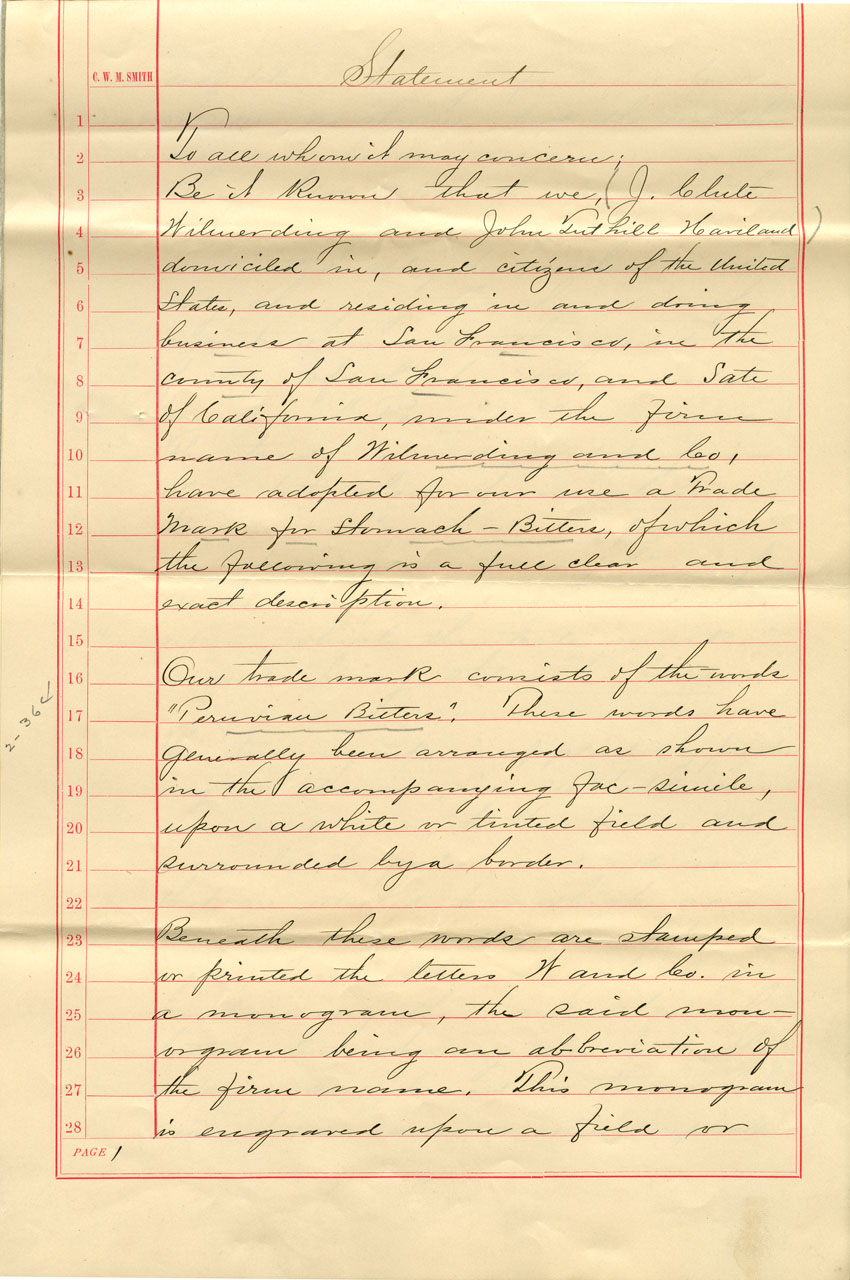 Statement
C. W. M. SMITH
1
2 To all whom it may concern;
3 Be it Known that we, (J. Clute
4 Wilmerding and John Tuthill Haviland)
5 domiciled in, and citizens of the United
6 States, and residing in and doing
7 business at San Francisco, in the
8 county of San Francisco, and Sate
9 of California, under the firm
10 name of Wilmerding and Co,
11 have adopted for our use a Trade
12 Mark for Stomach - Bitters, of which
13 the following is a full clear and
14 exact description.
15
16 Our trade mark consists of the words
17 "Peruvian Bitters". These words have
18 generally been arranged as shown
19 in the accompanying fac-simile,
20 upon a white or tinted field and
21 surrounded by a border.
22
23 Beneath these words are stamped
24 or printed the letters W and Co. in
25 a monogram, the said mon-
26 orgram being an abbreviation of
27 the firm name. This monogram
28 is engraved upon a field or
PAGE 1
2-36